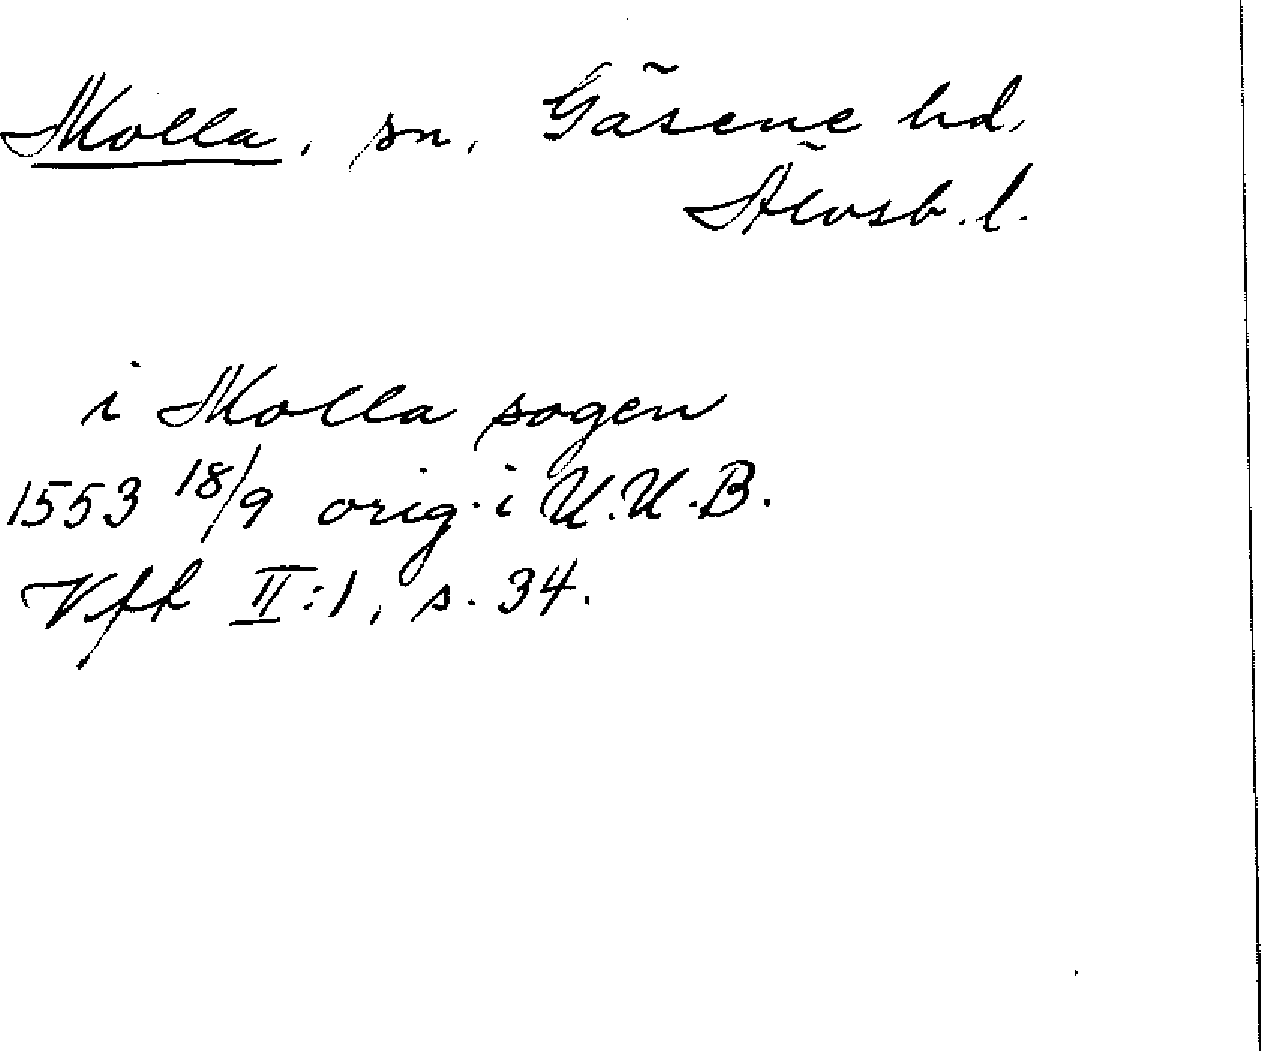 Molla, sn, Gäsene hd,
Älvsb. l.
i Molla sogen
1553 18/9 orig. i U.U.B.
Vff II:1, s. 34.